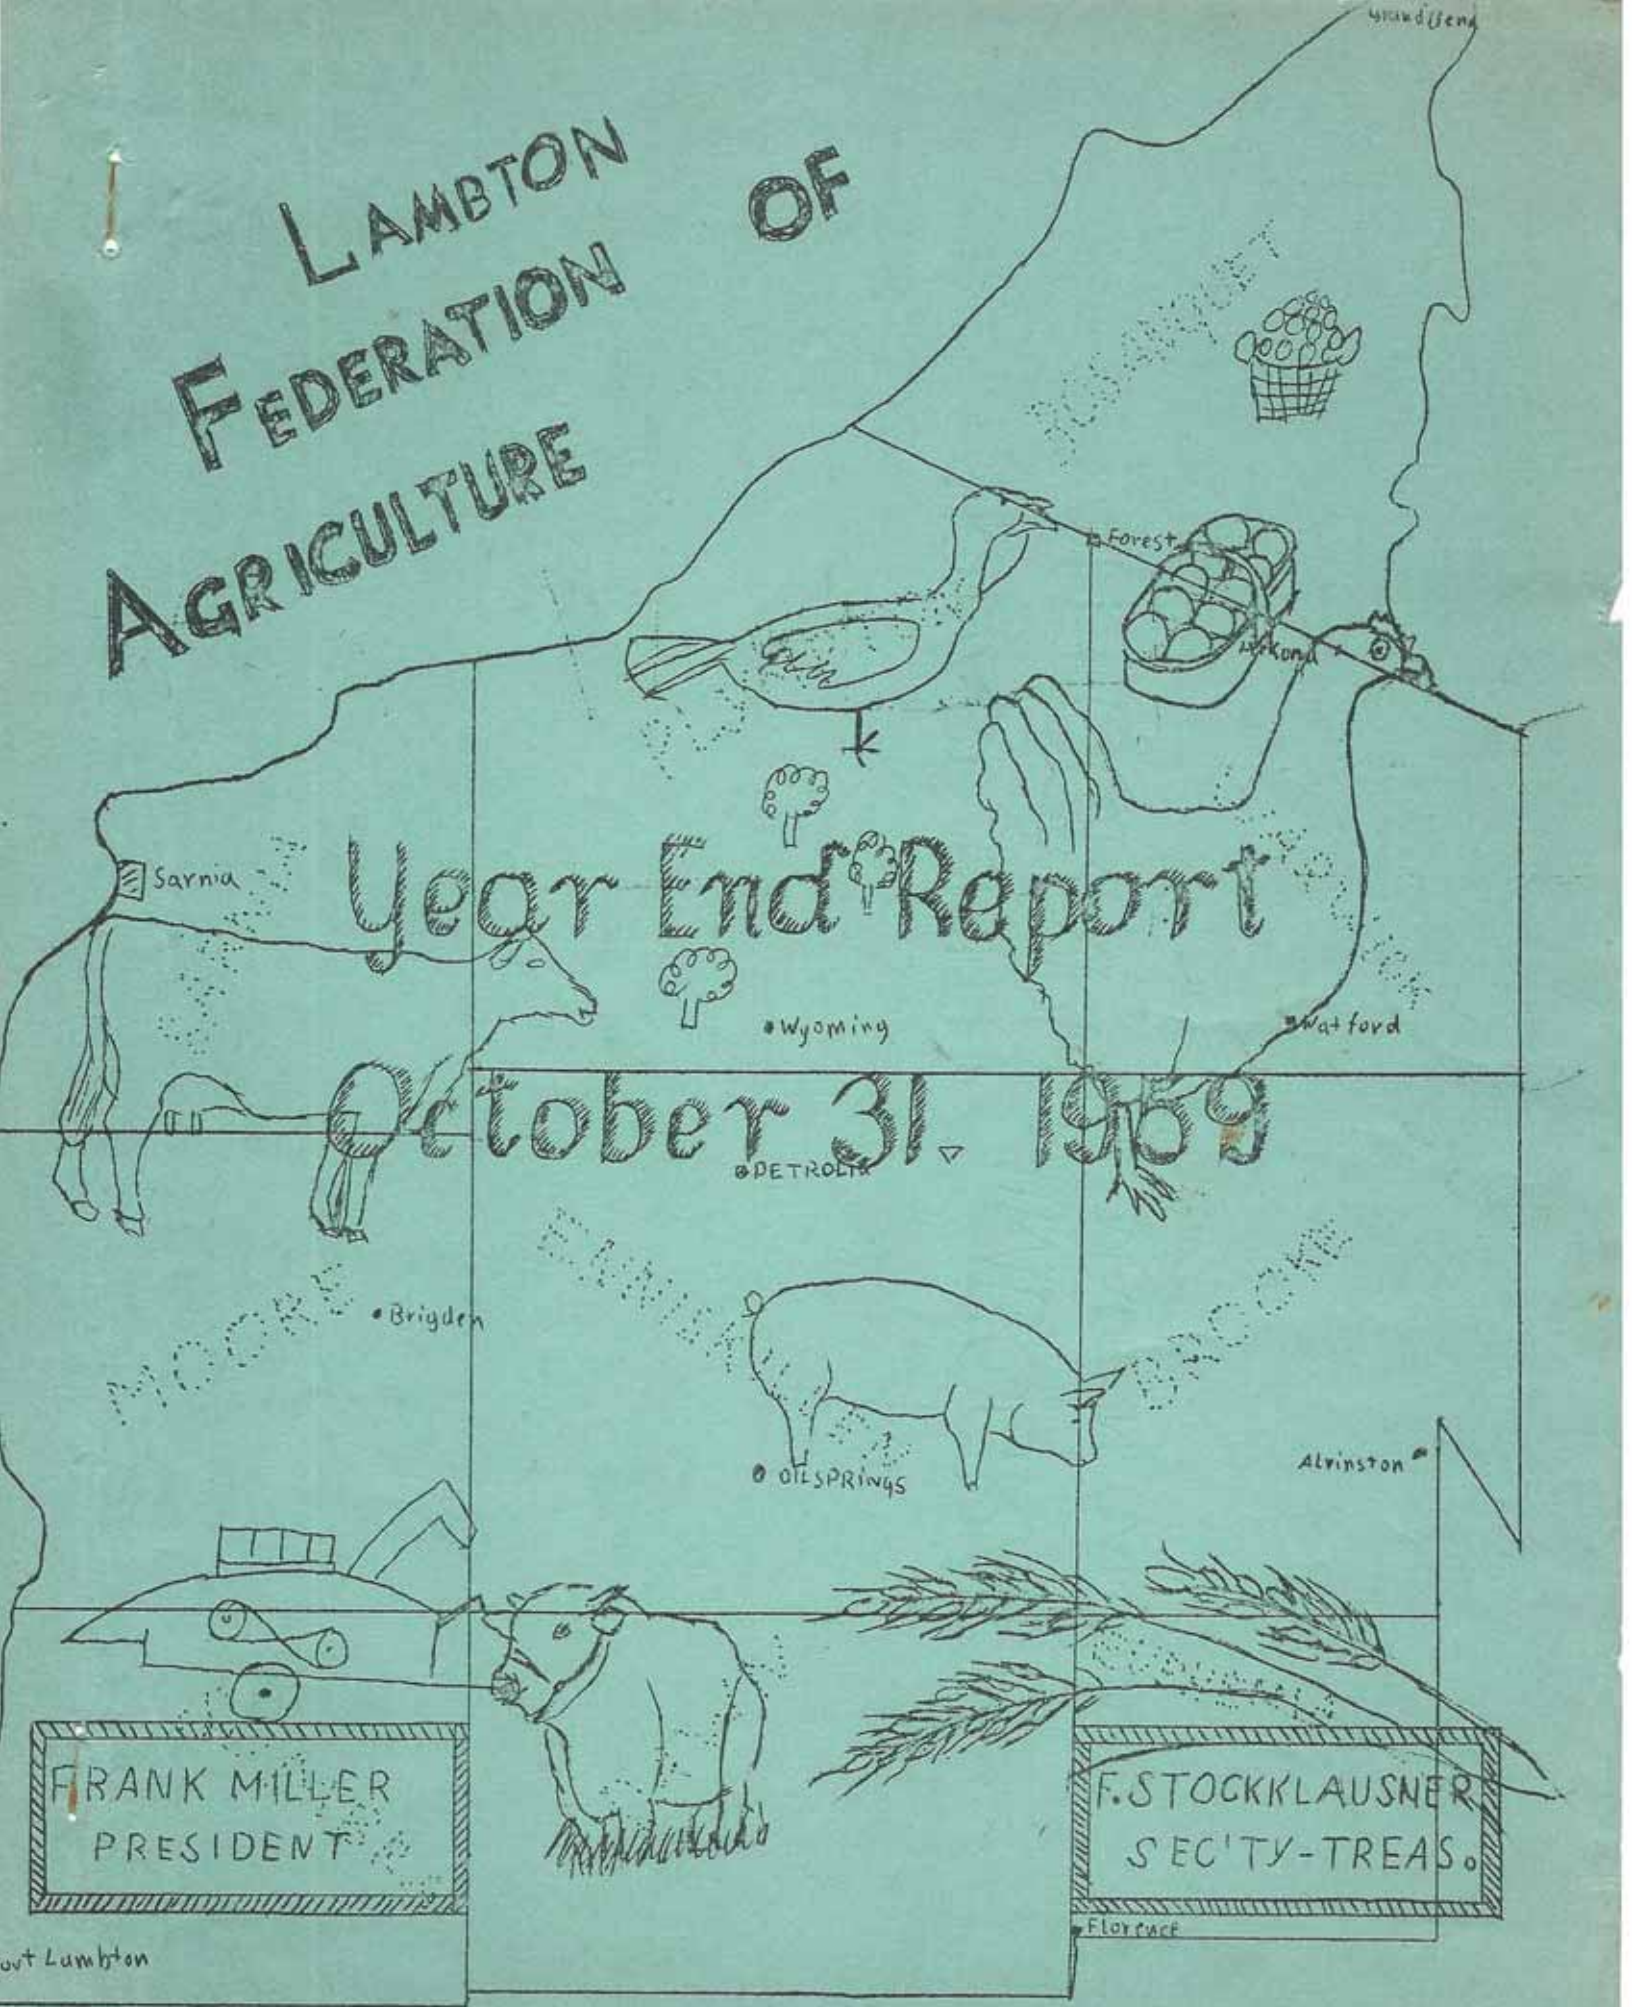 Grand Bend
LAMBTON
FEDERATION OF
AGRICULTURE
BOSANQUET
Forest
Arkona
Sarnia
Year End Report
Wyoming
Watford
October 31. 1969
PETROLIA
MOORE
Brigden
ENNISKILLEN
BROOKE
OILSPRINGS
Alvinston
FRANK MILLER
PRESIDENT
F. STOCKKLAUSNER
SEC'TY-TREAS.
Florence
Lambton